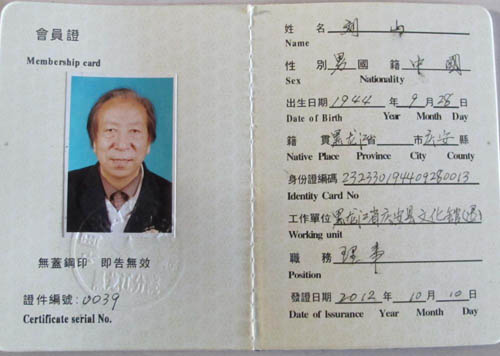 會員證
Membership card
無蓋鋼印 即告無效
證件編號: 0039
Certificate serial No.
姓 名 刘山
Name
性 別 男 國 籍 中國
Sex Nationality
出生日期 1944 年 9 月 28 日
Date of Birth Year Month Day
籍 貫 黑龙江省 市 庆安 縣
Native Place Province City County
身份證編碼 232330194409280013
Identity Card No
工作單位 黑龙江省庆安县文化馆(退)
Working unit
職 務 理事
Position
發證日期 2012 年 10 月 10 日
Date of Issurance Year Month Day